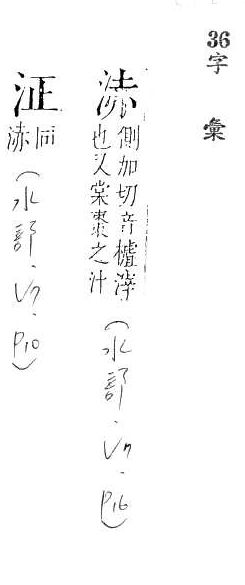 36
字彙
浾 側加切音樝滓
也又棠棗之汁 (水部.V7.P16)
泟 同
浾 (水部.V7.P10)